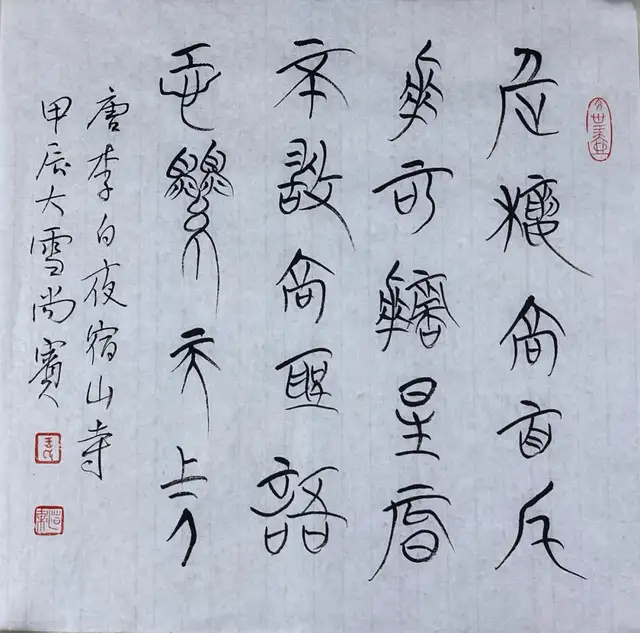 危樓高百尺
手可摘星辰
不敢高聲語
恐驚天上人
唐李白夜宿山寺
甲辰大雪尚賓